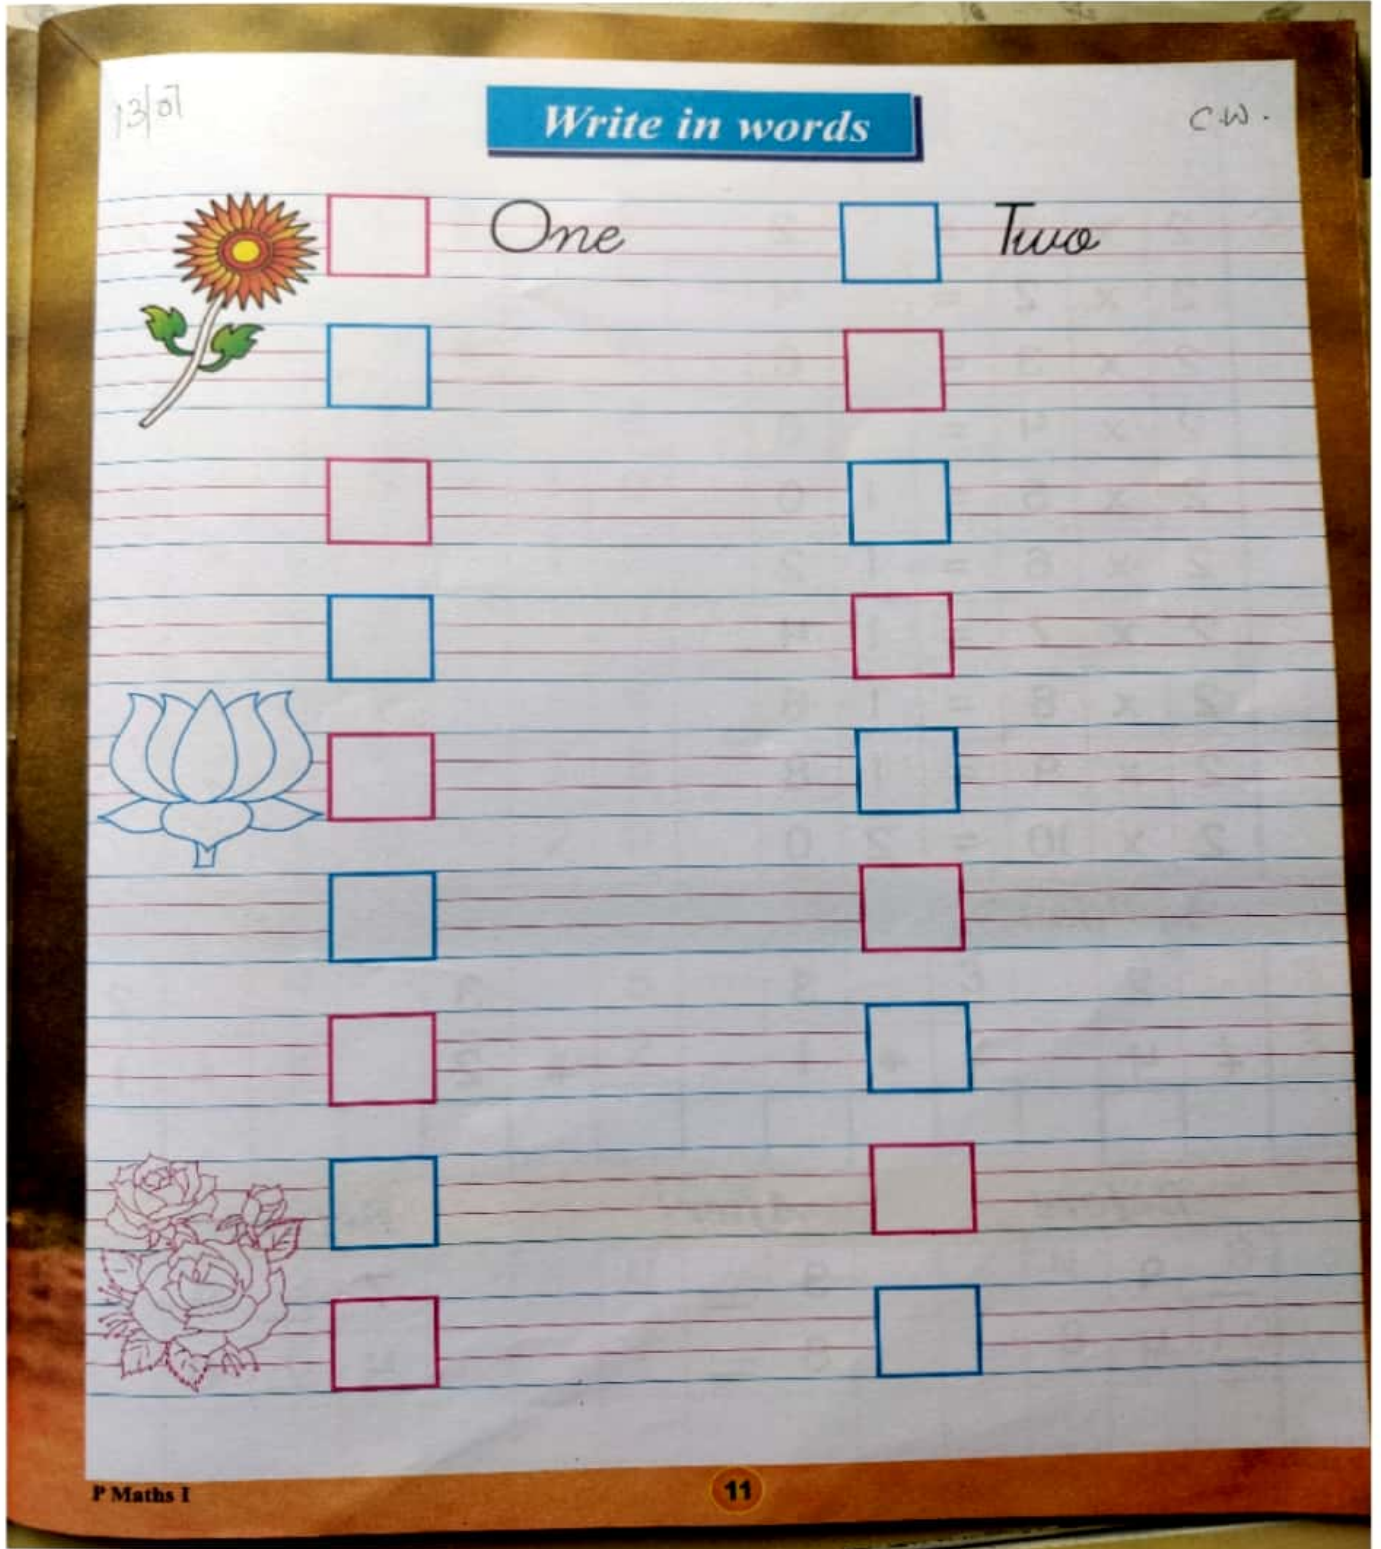 13/07
Write in words
C.W.
One Two
P Maths I
11